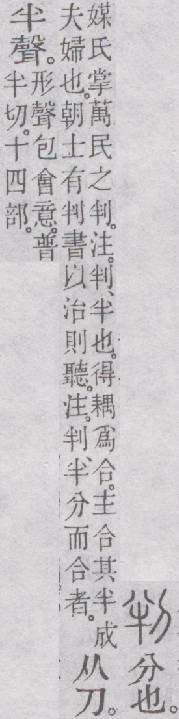 判分也。
媒氏掌萬民之判。注。判、半也。得耦爲合。主合其半成
夫婦也。朝士有判書以治則聽。注。判、半分而合者。
从刀。
半聲。
形聲包會意。普
半切。十四部。